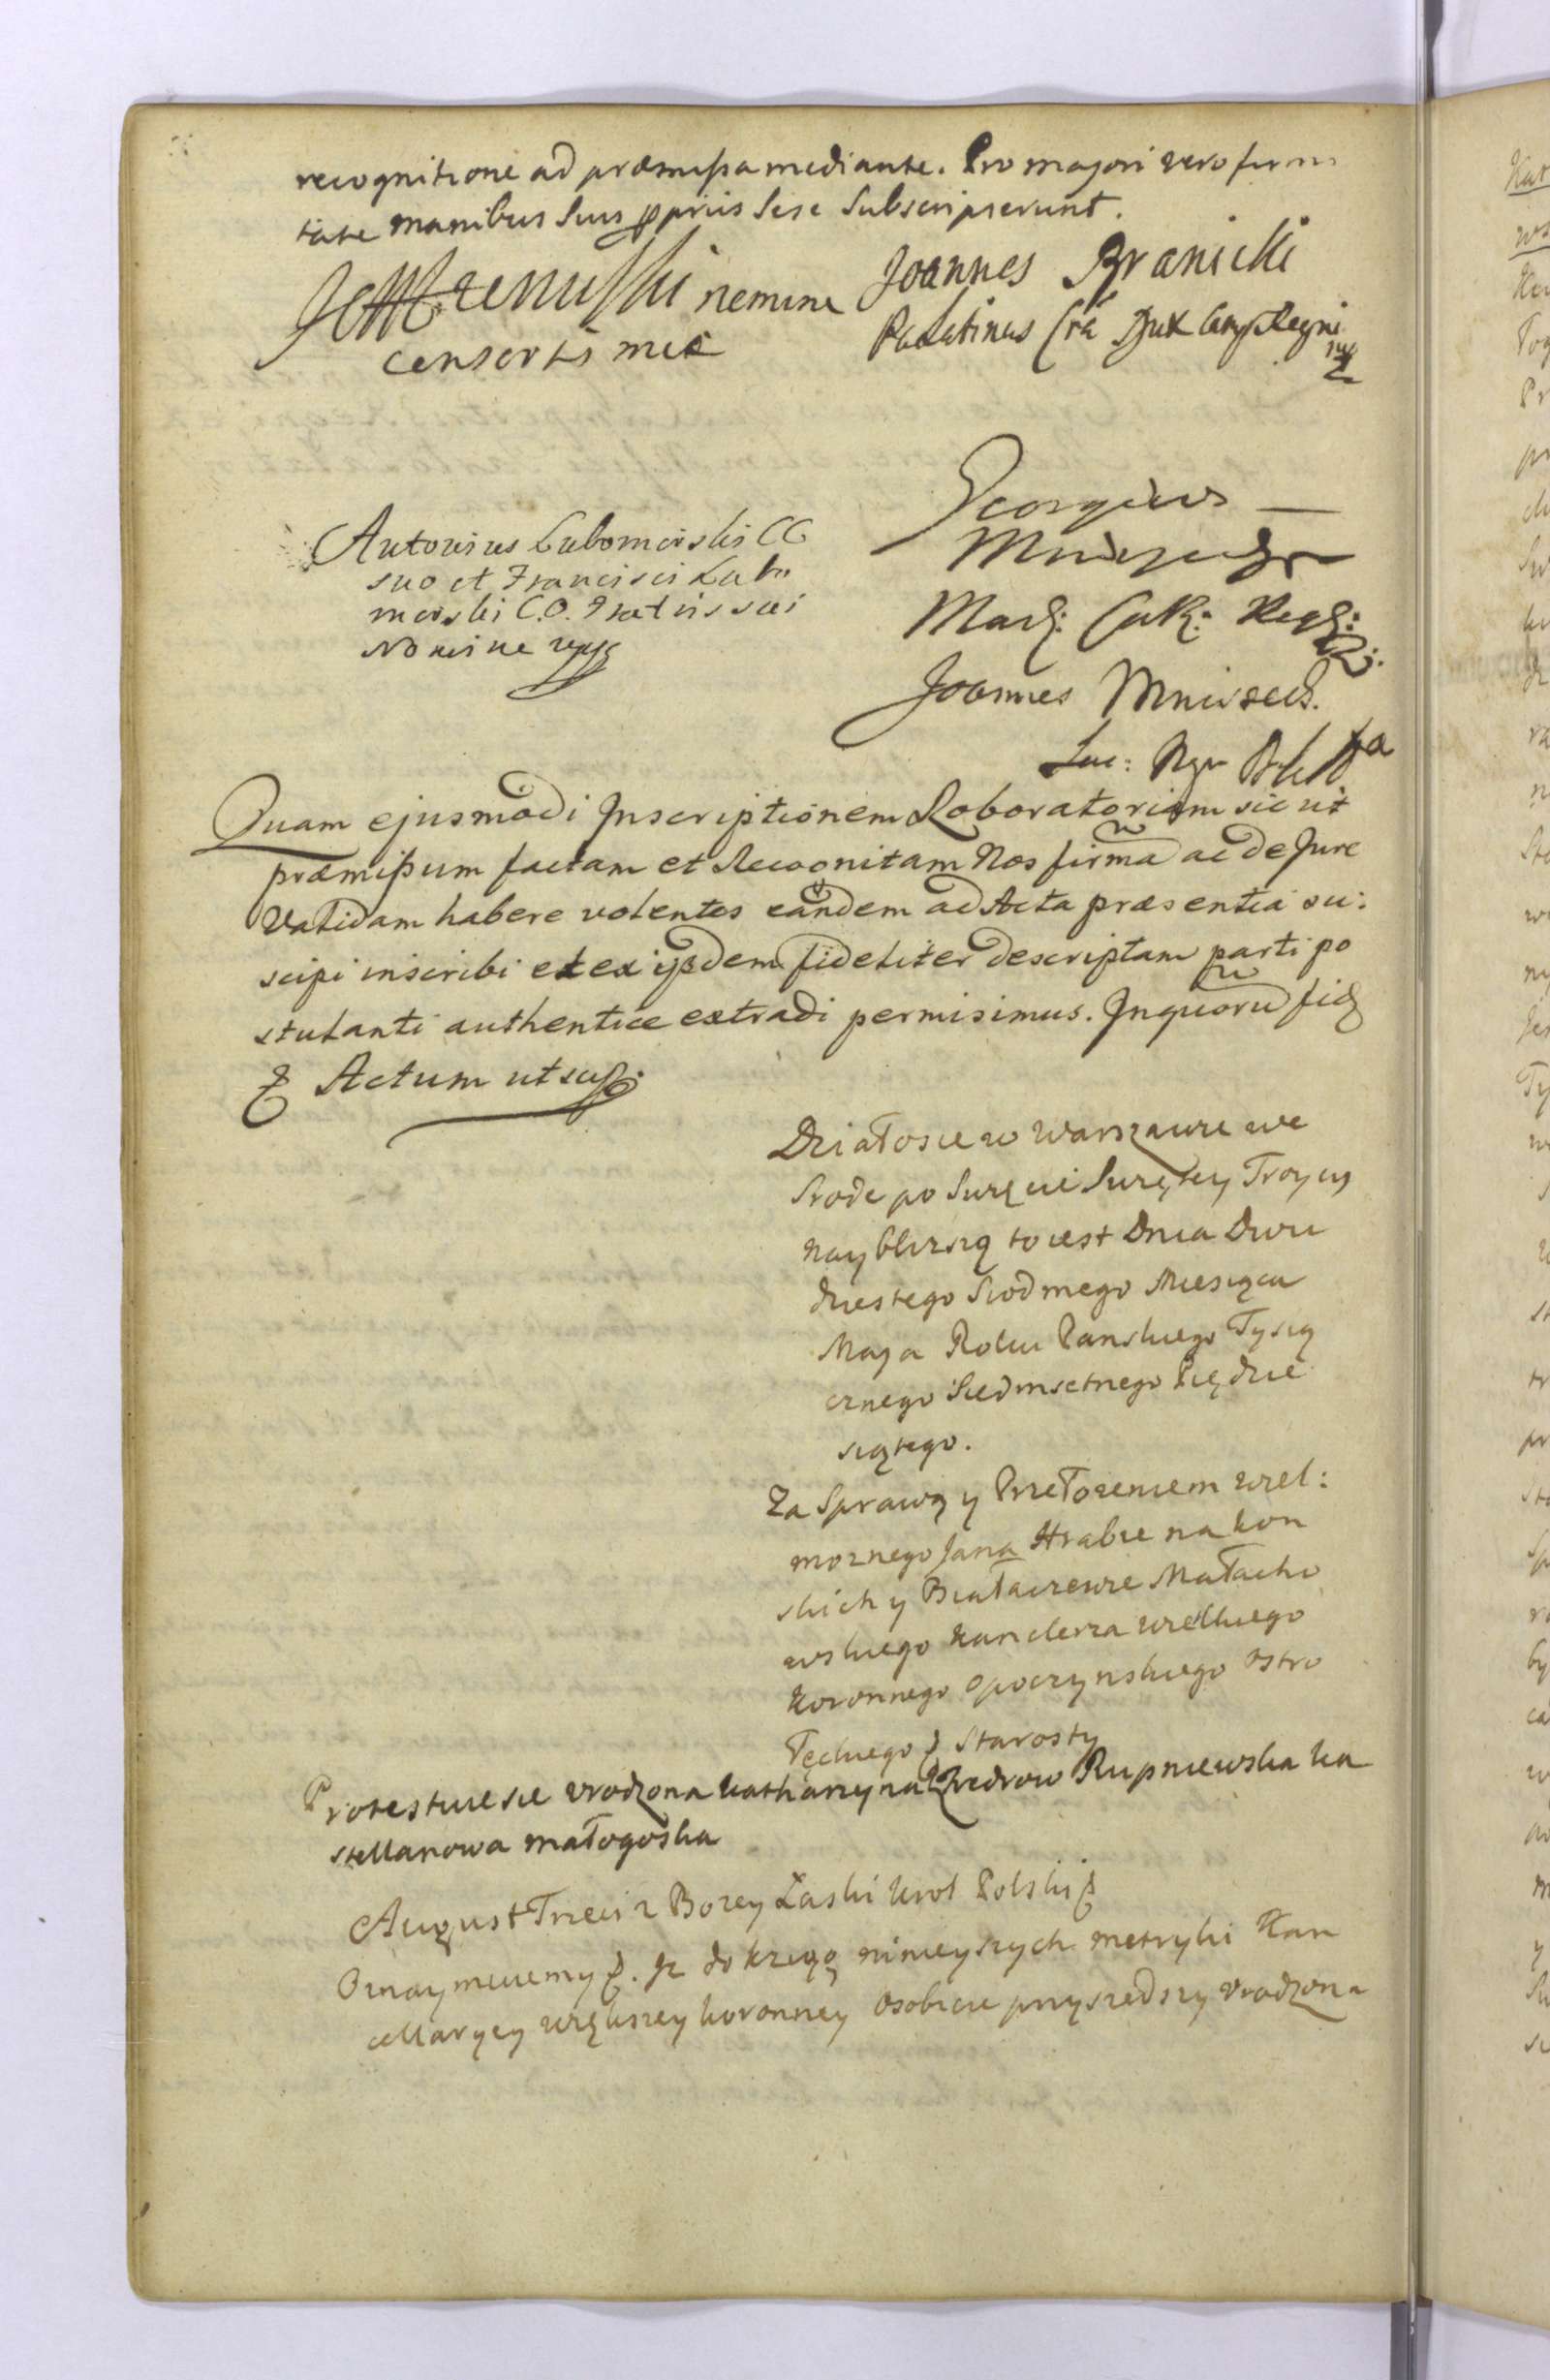 recognitione ad præmissa mediante. Pro majori vero firmi
tate manibus suis ppriis sese subscripserunt.
nomine
consortis mee
Joannes Branicki
Palatinus Cra Dux Camp Regni
mp
Antonius Lubomirski CC
suo et Francisci Lubo
mirski C.O. Fratris sui
Nomine mpp
Georgius
Mniszech
Mars: Cur: Regni:
Joannes Mniszech.
Quam ejusmodi Inscriptionem Roboratoriam sic ut
præmissum factam et Recognitam Nos firmã ac de Jure
Validam habere volentes eandem ad Acta præsentia su:
scipi inscribi et ex ijsdem fideliter descriptam parti po
stulanti authentice extradi permisimus. In quorũ fid
& Actum ut sup.
Działosie w Warszawie we
Srode po Swięcie Swiętey Troycy
naybliszą to iest Dnia Dwu
dziestego Siodmego Miesiąca
Maja Roku Panskiego Tysią
cznego Siedmsetnego Pięćdzie
siątego.
Za Sprawą y Przełozeniem wiel:
moznego Jana Hrabie na Kon
skich y Białaczewie Małacho
wskiego Kanclerza wielkiego
Koronnego Opoczynskiego Ostro
łęckiego & Starosty
Protestuie sie vrodzona Katharzyna Fredrow Rupniewska Ka
stellanowa małogoska
August Trzeci z Bozey Łaski Krol Polski &
Oznaymuiemy &. Jz do Xięgą ninieyszych metryki Kan
cellaryey większey koronney Osobiscie przyszedszy vrodzona